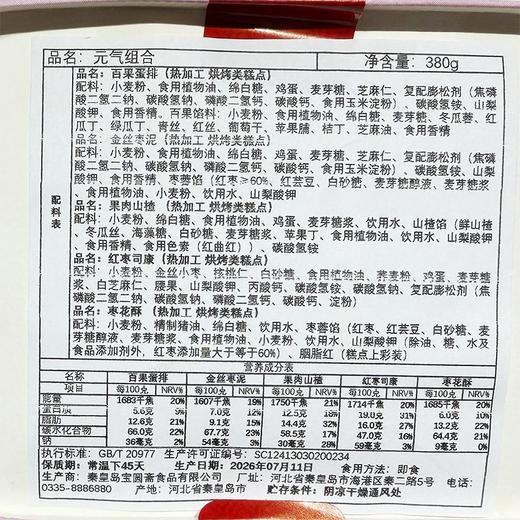 品名：元气组合 净含量：380g
配料表
品名：百果蛋排（热加工 烘烤类糕点）
配料：小麦粉、食用植物油、绵白糖、鸡蛋、麦芽糖、芝麻仁、复配膨松剂（焦磷
酸二氢二钠、碳酸氢钠、磷酸二氢钙、碳酸钙、食用玉米淀粉）、碳酸氢铵、山梨
酸钾、食用香精。百果馅料：小麦粉、食用植物油、绵白糖、麦芽糖、冬瓜蓉、红
瓜丁、绿瓜丁、青丝、红丝、葡萄干、苹果脯、桔丁、芝麻油、食用香精
品名：金丝枣泥（热加工 烘烤类糕点）
配料：小麦粉、食用植物油、绵白糖、鸡蛋、麦芽糖、芝麻仁、复配膨松剂（焦磷
酸二氢二钠、碳酸氢钠、磷酸二氢钙、碳酸钙、食用玉米淀粉）、碳酸氢铵、山梨
酸钾、食用香精、枣蓉馅（红枣≥60%、红芸豆、白砂糖、麦芽糖醇液、麦芽糖浆
、食用植物油、小麦粉、饮用水、山梨酸钾
品名：果肉山楂（热加工 烘烤类糕点）
配料：小麦粉、绵白糖、食用植物油、鸡蛋、麦芽糖浆、饮用水、山楂馅（鲜山楂
、冬瓜丝、海藻糖、白砂糖、麦芽糖浆、苹果丁、食用植物油、饮用水、山梨酸钾
、食用香精、食用色素（红曲红））、碳酸氢铵
品名：红枣司康（热加工 烘烤类糕点）
配料：小麦粉、金丝小枣、核桃仁、白砂糖、食用植物油、荞麦粉、鸡蛋、麦芽糖
浆、白芝麻仁、腰果、山梨酸钾、丙酸钙、碳酸氢钠、复配膨松剂（碳酸氢钠、焦
磷酸二氢二钠、碳酸氢钠、磷酸二氢钙、碳酸钙、淀粉）
品名：枣花酥 （热加工 烘烤类糕点）
配料：小麦粉、精制猪油、绵白糖、饮用水、枣蓉馅（红枣、红芸豆、白砂糖、麦
芽糖醇液、麦芽糖浆、食用植物油、小麦粉、饮用水、山梨酸钾（除油、糖、水及
食品添加剂外，红枣添加量大于等于60%）、胭脂红（糕点上彩装）
营养成分表
名称 百果蛋排 金丝枣泥 果肉山楂 红枣司康 枣花酥
项目 每100克 NRV% 每100克 NRV% 每100克 NRV% 每100克 NRV% 每100克 NRV%
能量 1683千焦 20% 1607千焦 19% 1750千焦 21% 1714千焦 20% 1685千焦 20%
蛋白质 5.6克 9% 7.0克 12% 12.5克 18% 19.0克 31% 6.0克 10%
脂肪 12.6克 21% 9.1克 15% 14.4克 32% 16.0克 27% 13.2克 22%
碳水化合物 66.0克 22% 67.7克 23% 58.5克 17% 47.0克 16% 64.4克 21%
钠 36毫克 2% 54毫克 3% 30毫克 28% 59毫克 3% 9毫克 0%
执行标准：GB/T 20977 生产许可证编号：SC12413030200234
保质期：常温下45天 生产日期：2026年07月11日 食用方法：即食
生产商：秦皇岛宝圆斋食品有限公司 地址：河北省秦皇岛市海港区秦二路5号 电话：
0335-8886880 产地：河北省秦皇岛市 贮存条件：阴凉干燥通风处